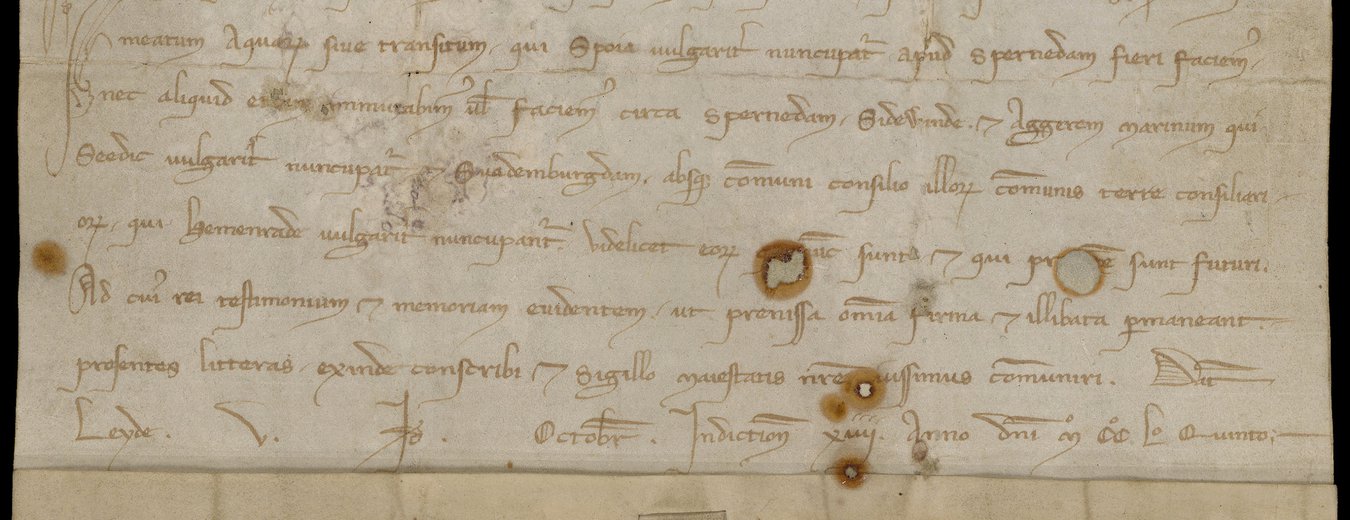 meatum Aquarꝝ sive transitum, qui Spoia vulgarit̉ nuncupat̉ apud Spernedam fieri faciem᷒,
nec aliquid immutabim᷒ ul̛ faciem᷒ circa Spernedam, Sidewinde, ⁊ Aggerem marinum qui
Seedic vulgarit̉ nuncupat̉ ⁊ absqꝫ com̄uni consilio illorꝝ com̄unis terre consiliari-
orꝝ, qui hemenrade vulgarit̉ nuncupant̉. Videlicet eorꝝ nūc sunt, ⁊ qui sunt futuri.
Ad cui᷒ rei testimonium ⁊ memoriam evidentem, ut premissa om̄ia firma ⁊ illibata ꝑmaneant.
presentes litteras, exinde conscribi ⁊ Sigillo maiestatis nr̄e iussimus com̄uniri. Dat̄
Leyde. V. Id̄. Octobr̄. Indiction̄ xiiij. Anno dn̄i mº CCº Lº Quinto.